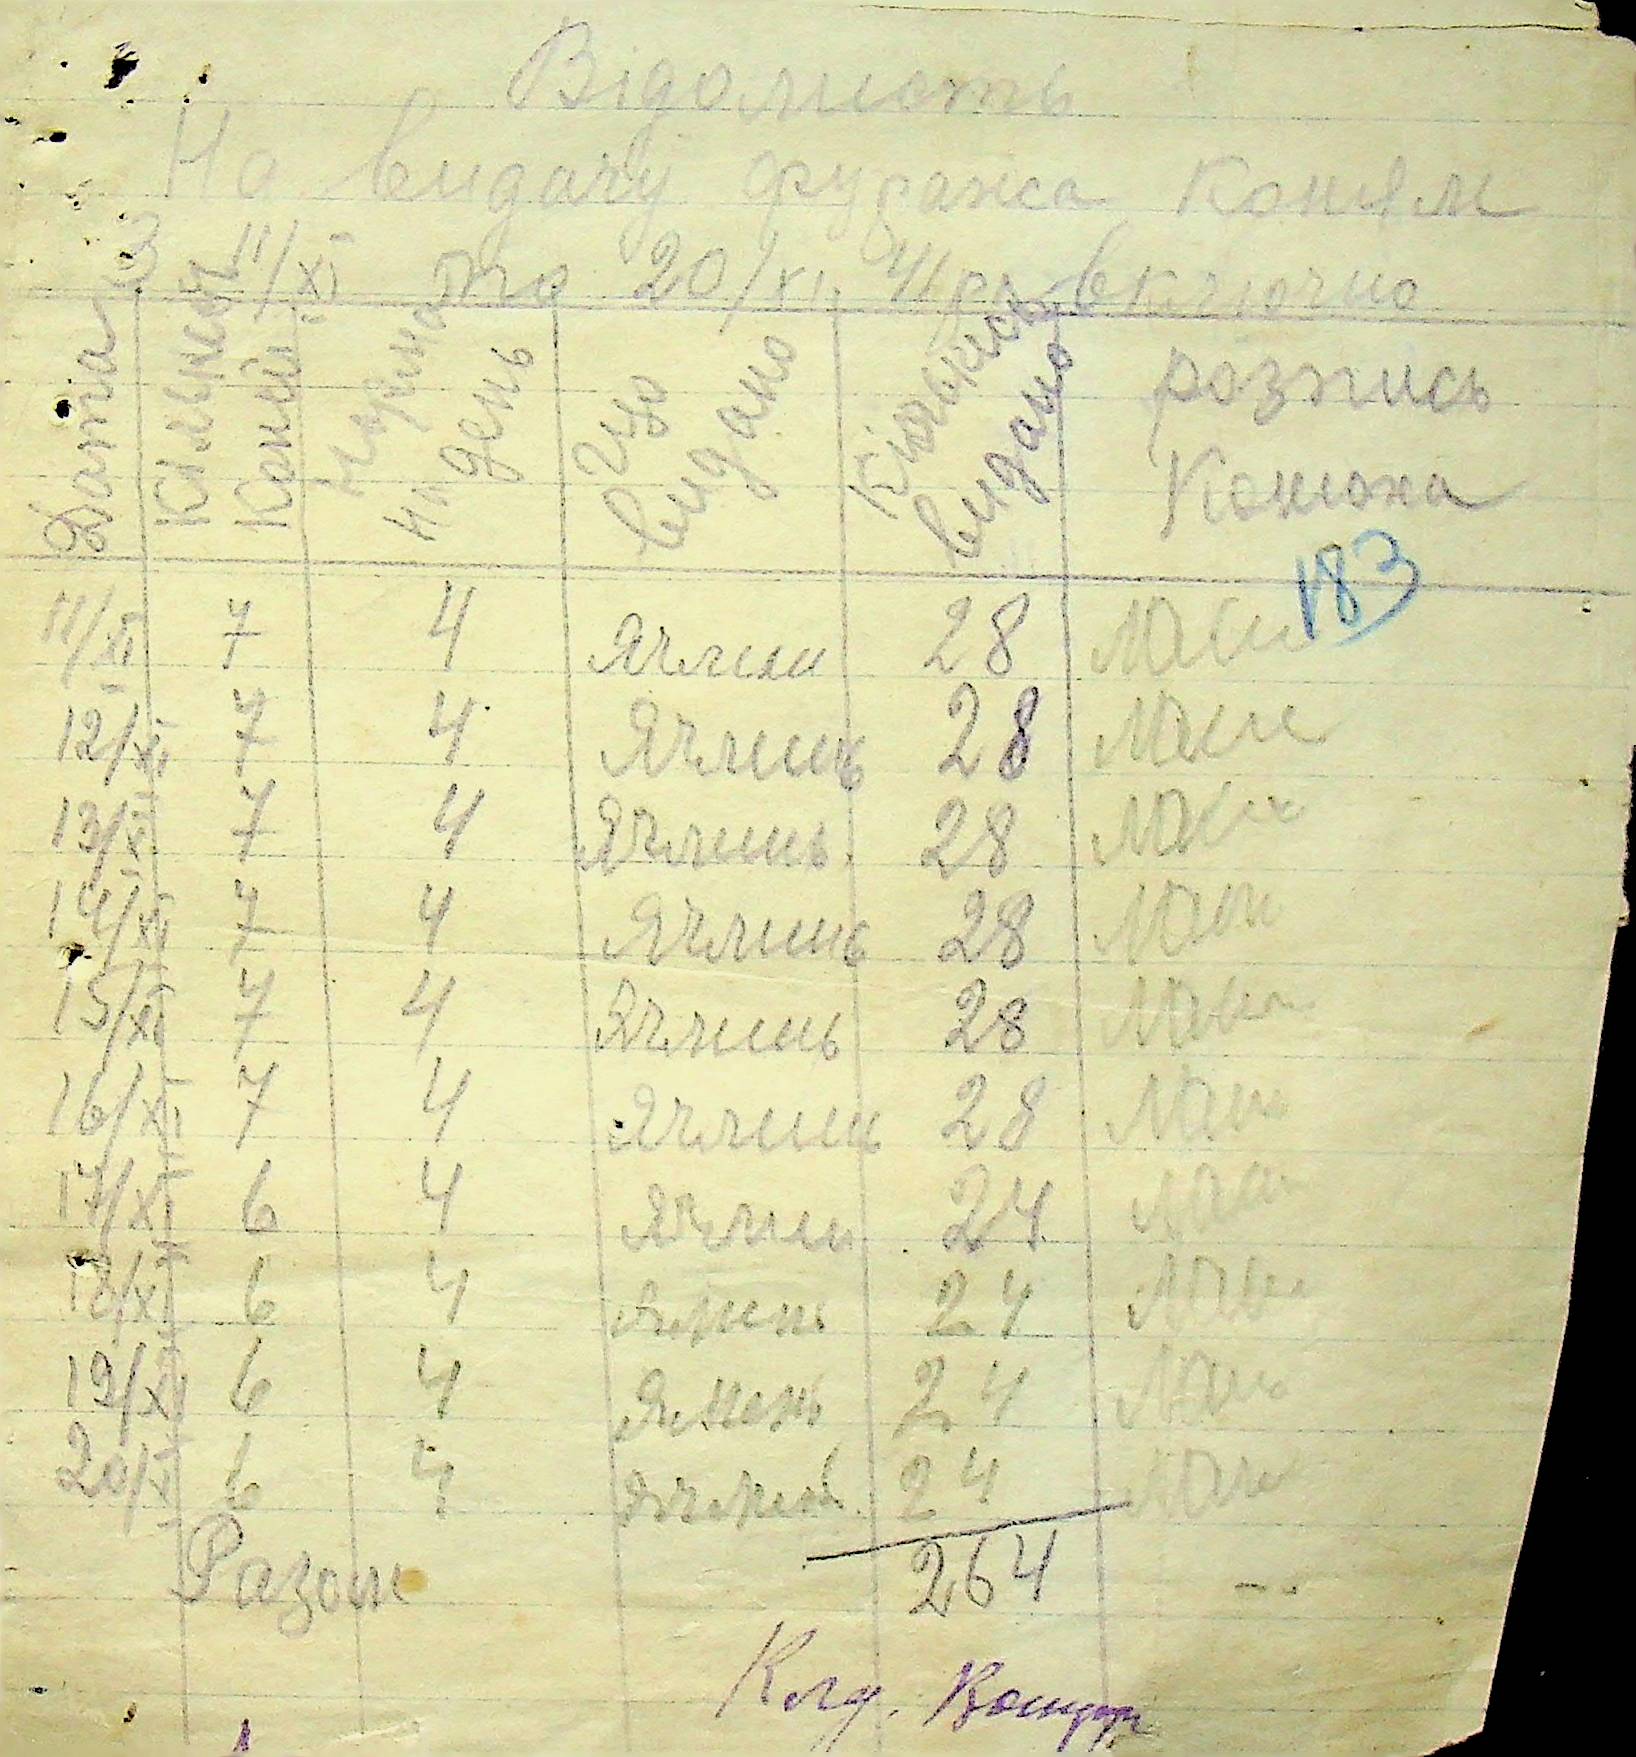 Відомисть
На видачу фуража Коням
З 11/XI по 20/XI 41 р. включно
Дата
Кількість Коний
Норма на день
Що видано
Кількисть видано
розпись Конюха
183
11/XI 7 4 Ячмин 28
12/XI 7 4 Ячминь 28
13/XI 7 4 Ячминь 28
14/XI 7 4 Ячминь 28
15/XI 7 4 Ячминь 28
16/XI 7 4 Ячминь 28
17/XI 6 4 Ячмин 24
18/XI 6 4 Ячмень 24
19/XI 6 4 Ячмень 24
20/XI 6 4 Ячмень 24
Разом 264 --
Клд.